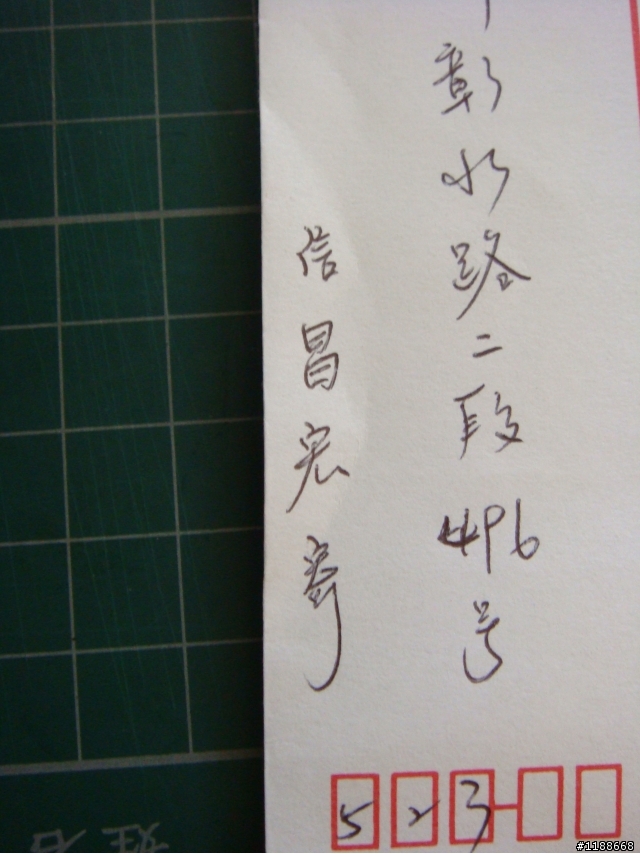 彰水路二段496号
信昌宏寄
523
姓名
#1188668